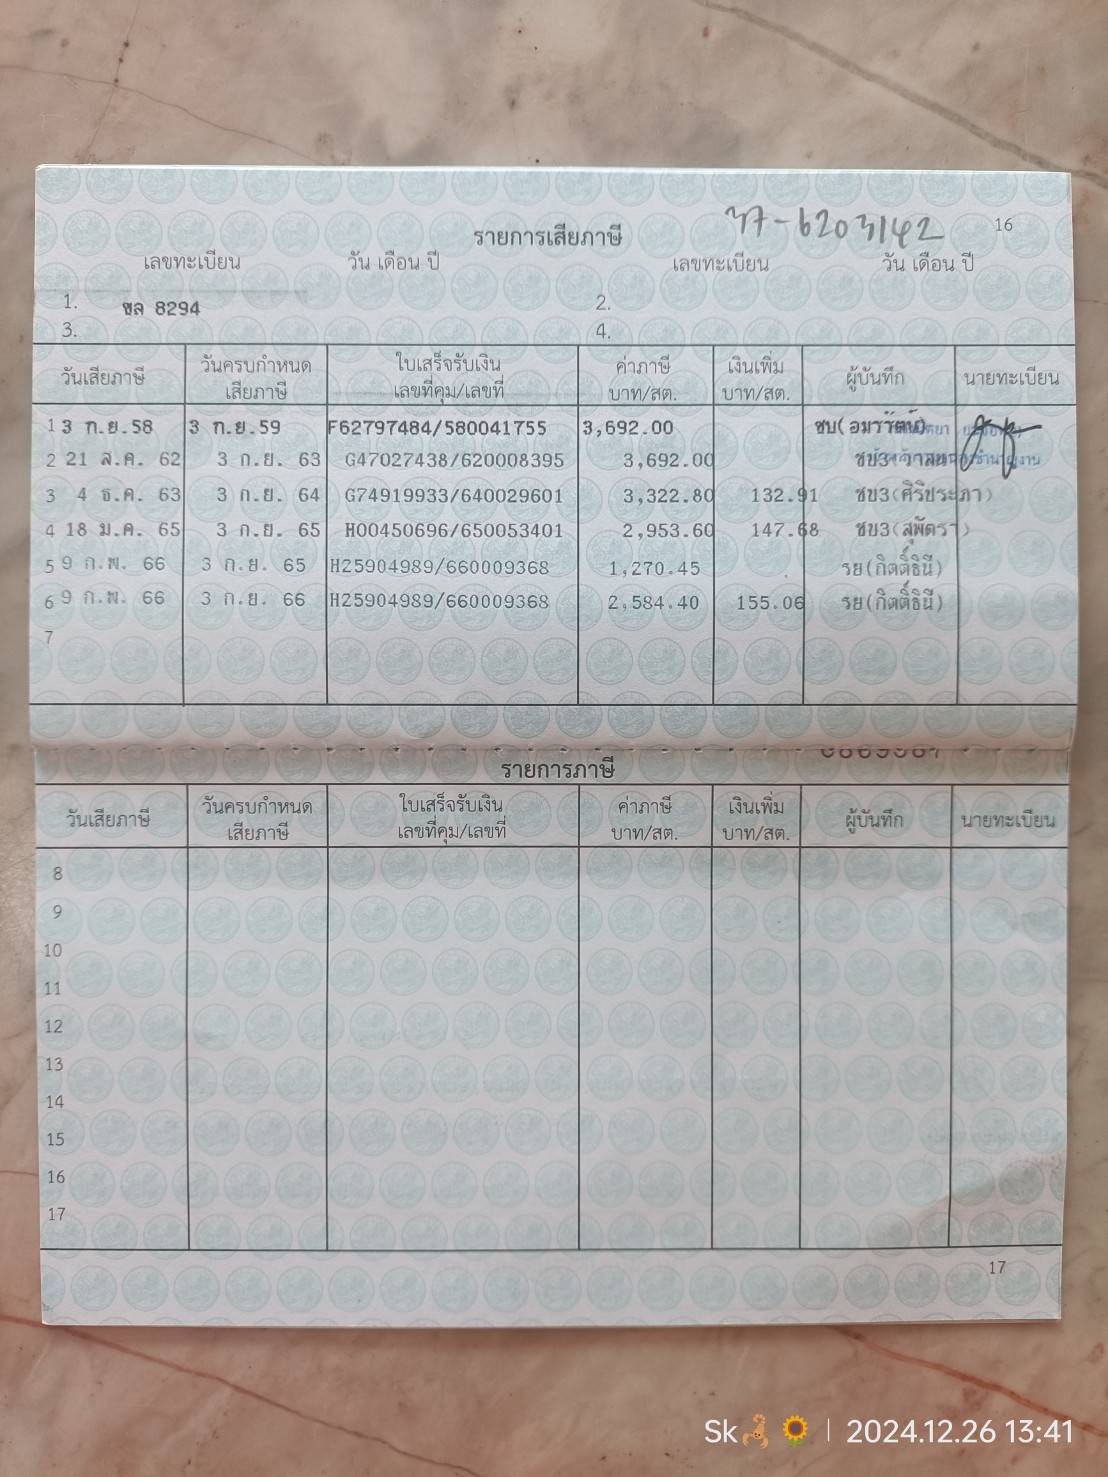 16
รายการเสียภาษี
37-6203142
เลขทะเบียน วัน เดือน ปี เลขทะเบียน วัน เดือน ปี
1. ขล 8294 2.
3. 4.
วันเสียภาษี วันครบกำหนดเสียภาษี ใบเสร็จรับเงิน เลขที่คุม/เลขที่ ค่าภาษี บาท/สต. เงินเพิ่ม บาท/สต. ผู้บันทึก นายทะเบียน
1 3 ก.ย.58 3 ก.ย.59 F62797484/580041755 3,692.00 ชบ(อมรรัตน์)
2 21 ส.ค. 62 3 ก.ย. 63 G47027438/620008395 3,692.00 ชบ3
3 4 ธ.ค. 63 3 ก.ย. 64 G74919933/640029601 3,322.80 132.91 ชบ3(ศิริประภา)
4 18 ม.ค. 65 3 ก.ย. 65 H00450696/650053401 2,953.60 147.68 ชบ3(สุพัตรา)
5 9 ก.พ. 66 3 ก.ย. 65 H25904989/660009368 1,270.45 รย(กิตติ์ธินี)
6 9 ก.พ. 66 3 ก.ย. 66 H25904989/660009368 2,584.40 155.06 รย(กิตติ์ธินี)
7
รายการภาษี
วันเสียภาษี วันครบกำหนดเสียภาษี ใบเสร็จรับเงิน เลขที่คุม/เลขที่ ค่าภาษี บาท/สต. เงินเพิ่ม บาท/สต. ผู้บันทึก นายทะเบียน
8
9
10
11
12
13
14
15
16
17
17
Sk | 2024.12.26 13:41